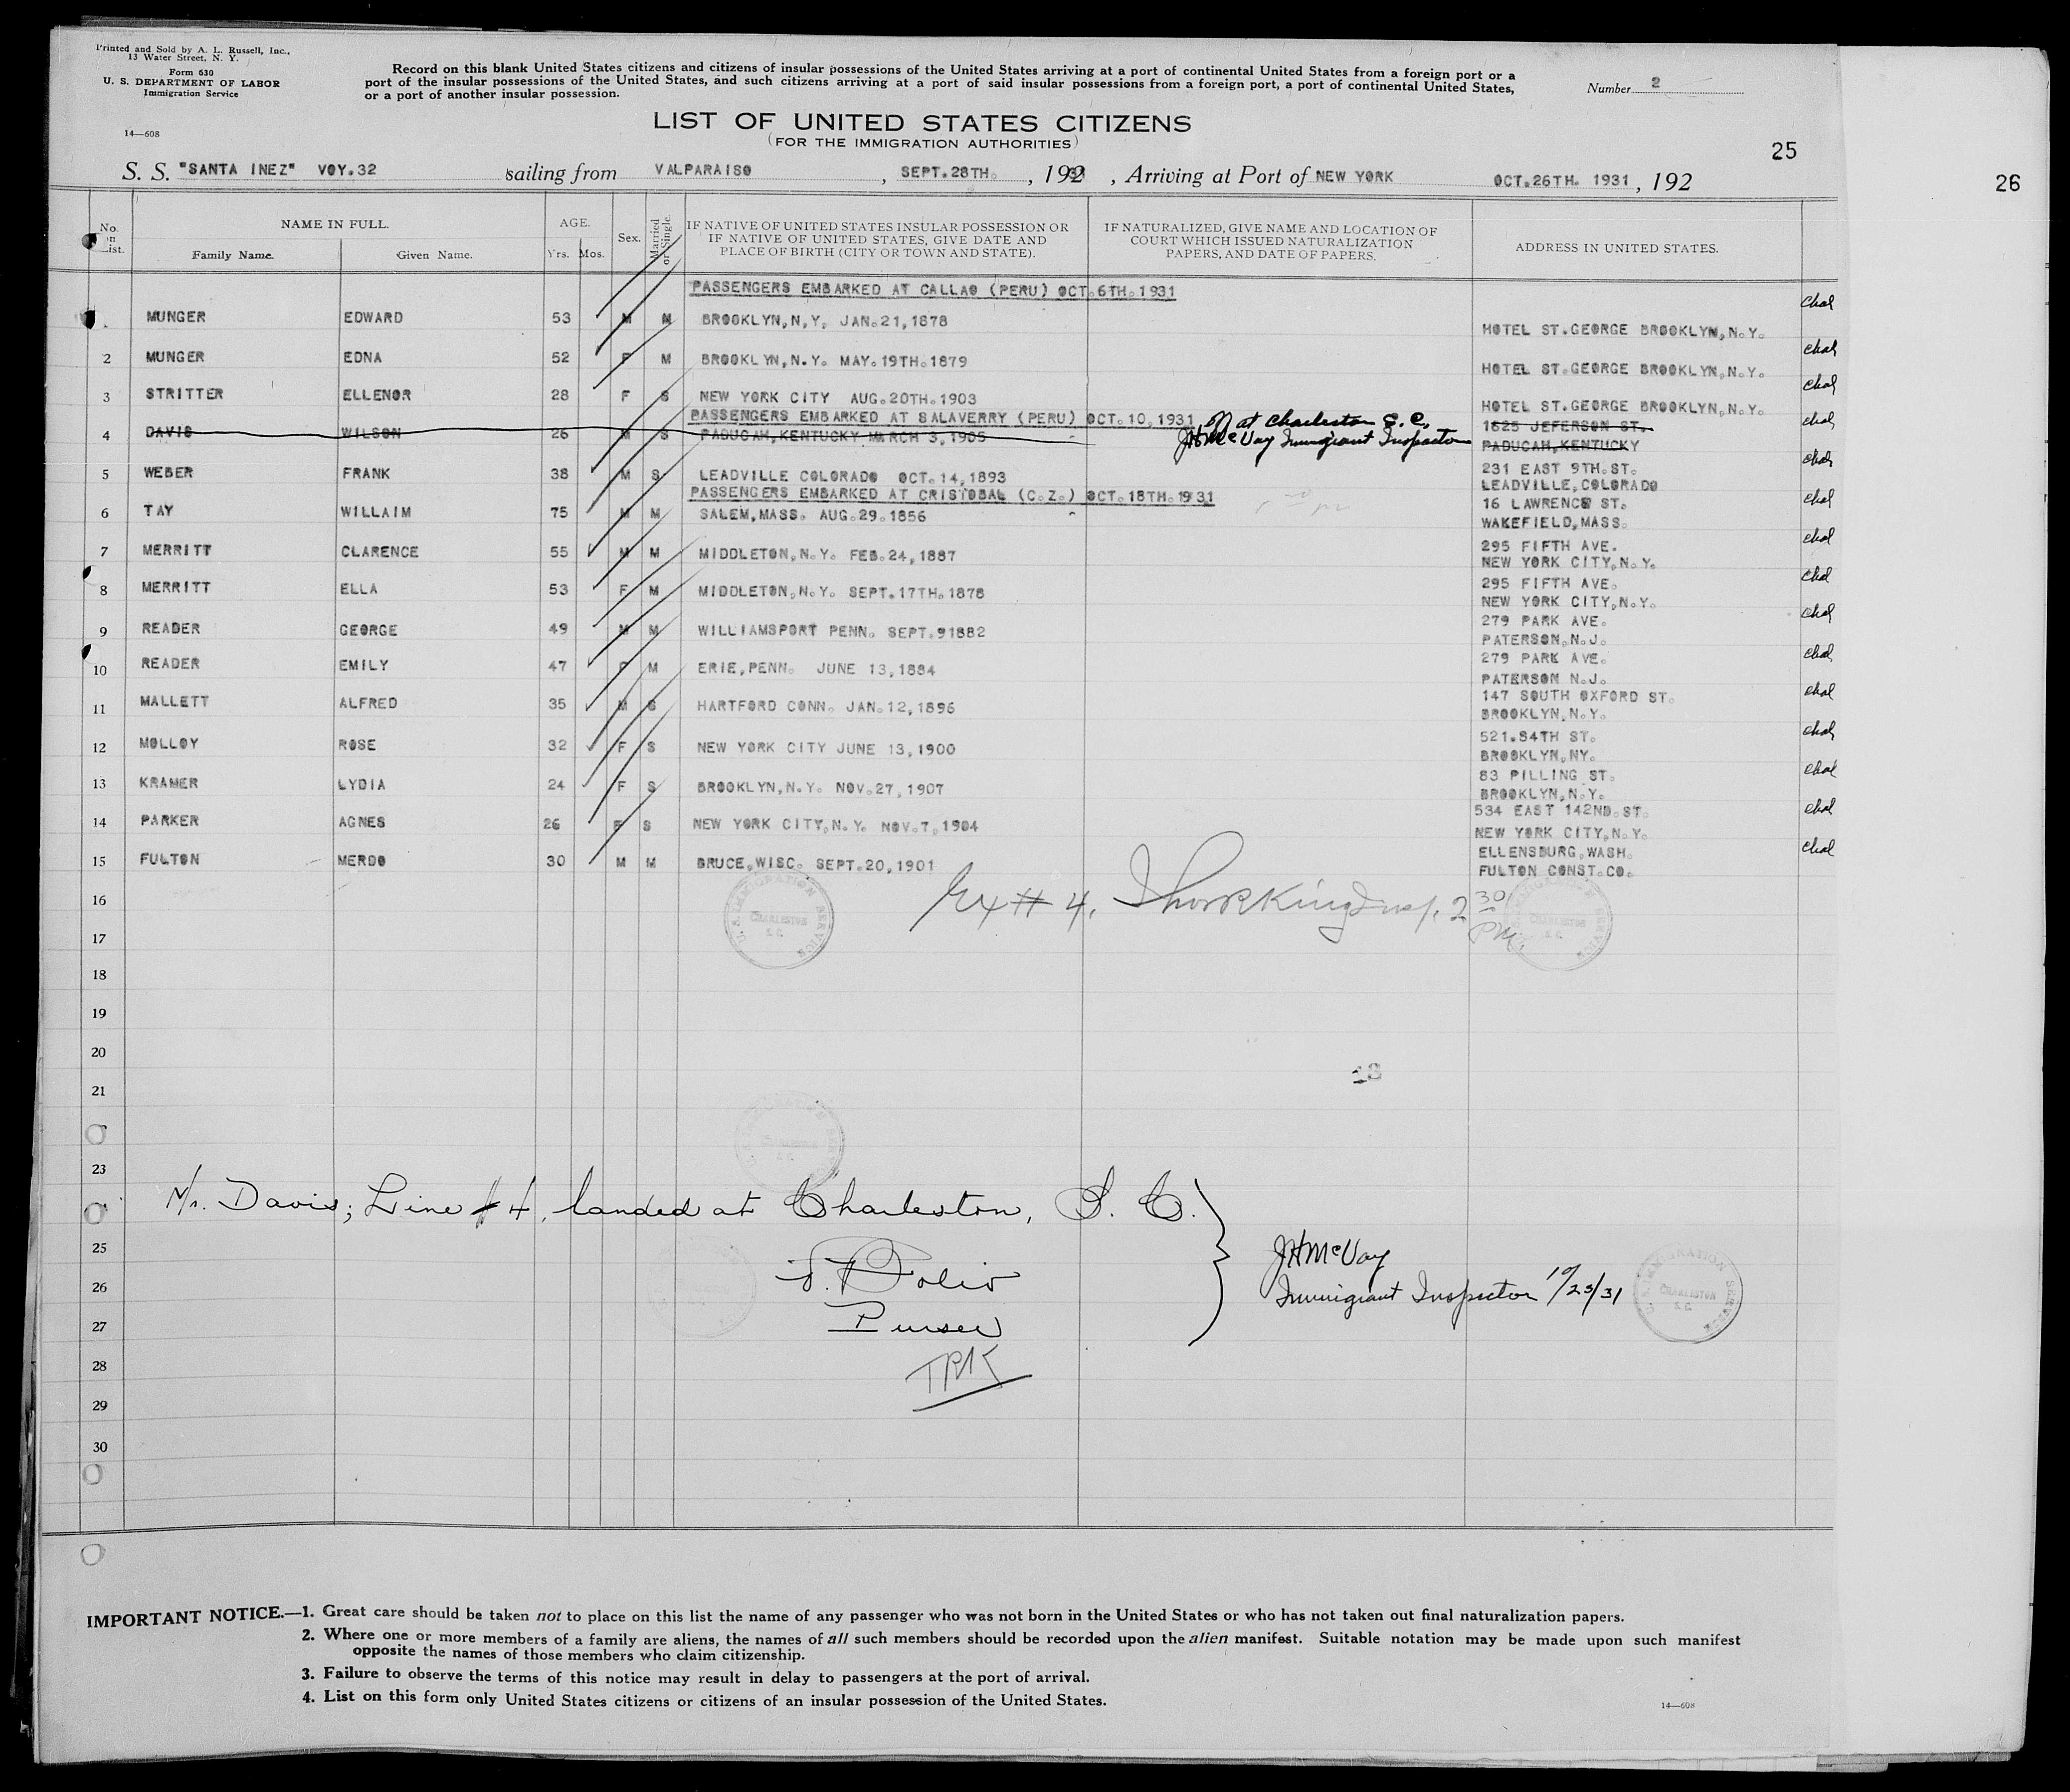 Printed and Sold by A. L. Russell, Inc.,
13 Water Street, N. Y.
Form 630
U. S. DEPARTMENT OF LABOR
Immigration Service
14—608
Record on this blank United States citizens and citizens of insular possessions of the United States arriving at a port of continental United States from a foreign port or a
port of the insular possessions of the United States, and such citizens arriving at a port of said insular possessions from a foreign port, a port of continental United States,
or a port of another insular possession.
Number 2
LIST OF UNITED STATES CITIZENS
(FOR THE IMMIGRATION AUTHORITIES)
25
26
S. S. "SANTA INEZ" VOY.32 sailing from VALPARAISO, SEPT.28TH., 192 , Arriving at Port of NEW YORK OCT.26TH. 1931, 192
No. on List. NAME IN FULL. AGE. Sex. Married or Single. IF NATIVE OF UNITED STATES INSULAR POSSESSION OR IF NATIVE OF UNITED STATES, GIVE DATE AND PLACE OF BIRTH (CITY OR TOWN AND STATE). IF NATURALIZED, GIVE NAME AND LOCATION OF COURT WHICH ISSUED NATURALIZATION PAPERS, AND DATE OF PAPERS. ADDRESS IN UNITED STATES.
Family Name. Given Name. Yrs. Mos.
PASSENGERS EMBARKED AT CALLAO (PERU) OCT.6TH.1931
MUNGER EDWARD 53 M M BROOKLYN,N,Y. JAN.21,1878 HOTEL ST.GEORGE BROOKLYN,N.Y. Chal
2 MUNGER EDNA 52 F M BROOKLYN,N.Y. MAY.19TH.1879 HOTEL ST.GEORGE BROOKLYN,N.Y. Chal
3 STRITTER ELLENOR 28 F S NEW YORK CITY AUG.20TH.1903 HOTEL ST.GEORGE BROOKLYN,N.Y. Chal
PASSENGERS EMBARKED AT SALAVERRY (PERU) OCT.10,1931 off at Charleston S.C.
4 DAVIS WILSON 26 M S PADUCAH,KENTUCKY MARCH 3,1905 JHMcVay Immigrant Inspector 1625 JEFERSON ST. Chal
PADUCAH,KENTUCKY
5 WEBER FRANK 38 M S LEADVILLE COLORADO OCT.14,1893 231 EAST 9TH.ST. Chal
LEADVILLE,COLORADO
PASSENGERS EMBARKED AT CRISTOBAL (C.Z.) OCT.18TH.1931
6 TAY WILLAIM 75 M M SALEM,MASS. AUG.29.1856 16 LAWRENCE ST. Chal
WAKEFIELD,MASS.
7 MERRITT CLARENCE 55 M M MIDDLETON,N.Y. FEB.24,1887 295 FIFTH AVE. Chal
NEW YORK CITY,N.Y.
8 MERRITT ELLA 53 F M MIDDLETON,N.Y. SEPT.17TH.1878 295 FIFTH AVE. Chal
NEW YORK CITY,N.Y.
9 READER GEORGE 49 M M WILLIAMSPORT PENN. SEPT.91882 279 PARK AVE. Chal
PATERSON,N.J.
10 READER EMILY 47 M ERIE,PENN. JUNE 13,1884 279 PARK AVE. Chal
PATERSON N.J.
11 MALLETT ALFRED 35 M S HARTFORD CONN. JAN.12,1896 147 SOUTH OXFORD ST. Chal
BROOKLYN,N.Y.
12 MOLLOY ROSE 32 F S NEW YORK CITY JUNE 13,1900 521.84TH ST. Chal
BROOKLYN,NY.
13 KRAMER LYDIA 24 F S BROOKLYN,N.Y. NOV.27,1907 83 PILLING ST. Chal
BROOKLYN,N.Y.
14 PARKER AGNES 26 F S NEW YORK CITY,N.Y. NOV.7,1904 534 EAST 142ND.ST. Chal
NEW YORK CITY,N.Y.
15 FULTON MERDO 30 M M BRUCE,WISC. SEPT.20,1901 ELLENSBURG,WASH. Chal
FULTON CONST.CO.
16 Ex # 4. Insp. 2 30
PM.
U. S. IMMIGRATION SERVICE CHARLESTON S.C.
17
18
19
20
21
23
Mr. Davis; Line # 4, landed at Charleston, S. C.
25 JHMcVay
26 Immigrant Inspector 10/23/31
U. S. IMMIGRATION SERVICE CHARLESTON S.C.
27 Purser
28 TRK
29
30
IMPORTANT NOTICE.—1. Great care should be taken not to place on this list the name of any passenger who was not born in the United States or who has not taken out final naturalization papers.
2. Where one or more members of a family are aliens, the names of all such members should be recorded upon the alien manifest. Suitable notation may be made upon such manifest
opposite the names of those members who claim citizenship.
3. Failure to observe the terms of this notice may result in delay to passengers at the port of arrival.
4. List on this form only United States citizens or citizens of an insular possession of the United States.
14—608